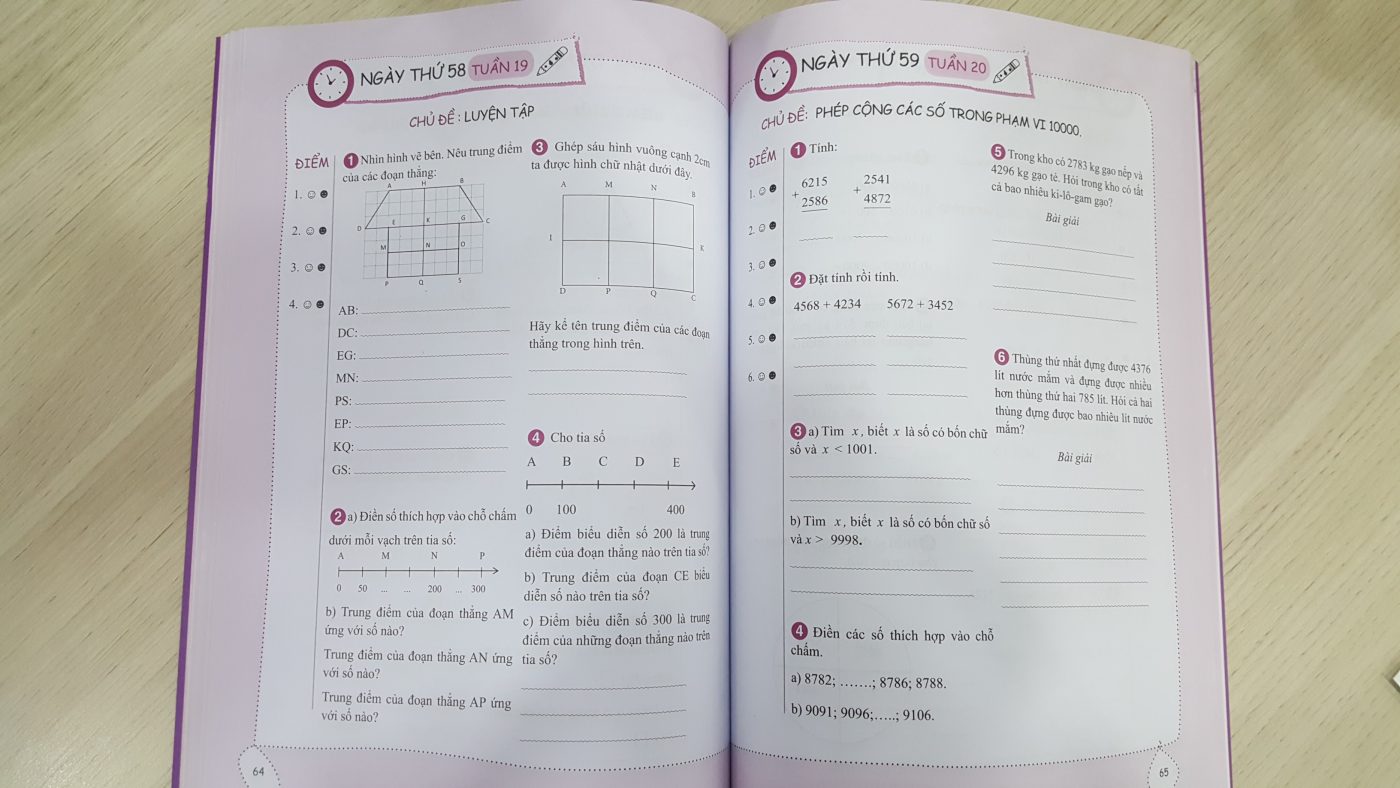 NGÀY THỨ 58 TUẦN 19
CHỦ ĐỀ : LUYỆN TẬP
ĐIỂM
1.
2.
3.
4.
1 Nhìn hình vẽ bên. Nêu trung điểm
của các đoạn thẳng:
A H B
D E K G C
M N O
P Q S
AB:
DC:
EG:
MN:
PS:
EP:
KQ:
GS:
2 a) Điền số thích hợp vào chỗ chấm
dưới mỗi vạch trên tia số:
A M N P
0 50 ... ... 200 ... 300
b) Trung điểm của đoạn thẳng AM
ứng với số nào?
Trung điểm của đoạn thẳng AN ứng
với số nào?
Trung điểm của đoạn thẳng AP ứng
với số nào?
3 Ghép sáu hình vuông cạnh 2cm
ta được hình chữ nhật dưới đây.
A M N B
I K
D P Q C
Hãy kể tên trung điểm của các đoạn
thẳng trong hình trên.
4 Cho tia số
A B C D E
0 100 400
a) Điểm biểu diễn số 200 là trung
điểm của đoạn thẳng nào trên tia số?
b) Trung điểm của đoạn CE biểu
diễn số nào trên tia số?
c) Điểm biểu diễn số 300 là trung
điểm của những đoạn thẳng nào trên
tia số?
64
NGÀY THỨ 59 TUẦN 20
CHỦ ĐỀ: PHÉP CỘNG CÁC SỐ TRONG PHẠM VI 10000.
ĐIỂM
1.
2.
3.
4.
5.
6.
1 Tính:
6215 2541
+ +
2586 4872
2 Đặt tính rồi tính.
4568 + 4234 5672 + 3452
3 a) Tìm x, biết x là số có bốn chữ
số và x < 1001.
b) Tìm x, biết x là số có bốn chữ số
và x > 9998.
4 Điền các số thích hợp vào chỗ
chấm.
a) 8782; …….; 8786; 8788.
b) 9091; 9096;…..; 9106.
5 Trong kho có 2783 kg gạo nếp và
4296 kg gạo tẻ. Hỏi trong kho có tất
cả bao nhiêu ki-lô-gam gạo?
Bài giải
6 Thùng thứ nhất đựng được 4376
lít nước mắm và đựng được nhiều
hơn thùng thứ hai 785 lít. Hỏi cả hai
thùng đựng được bao nhiêu lít nước
mắm?
Bài giải
65